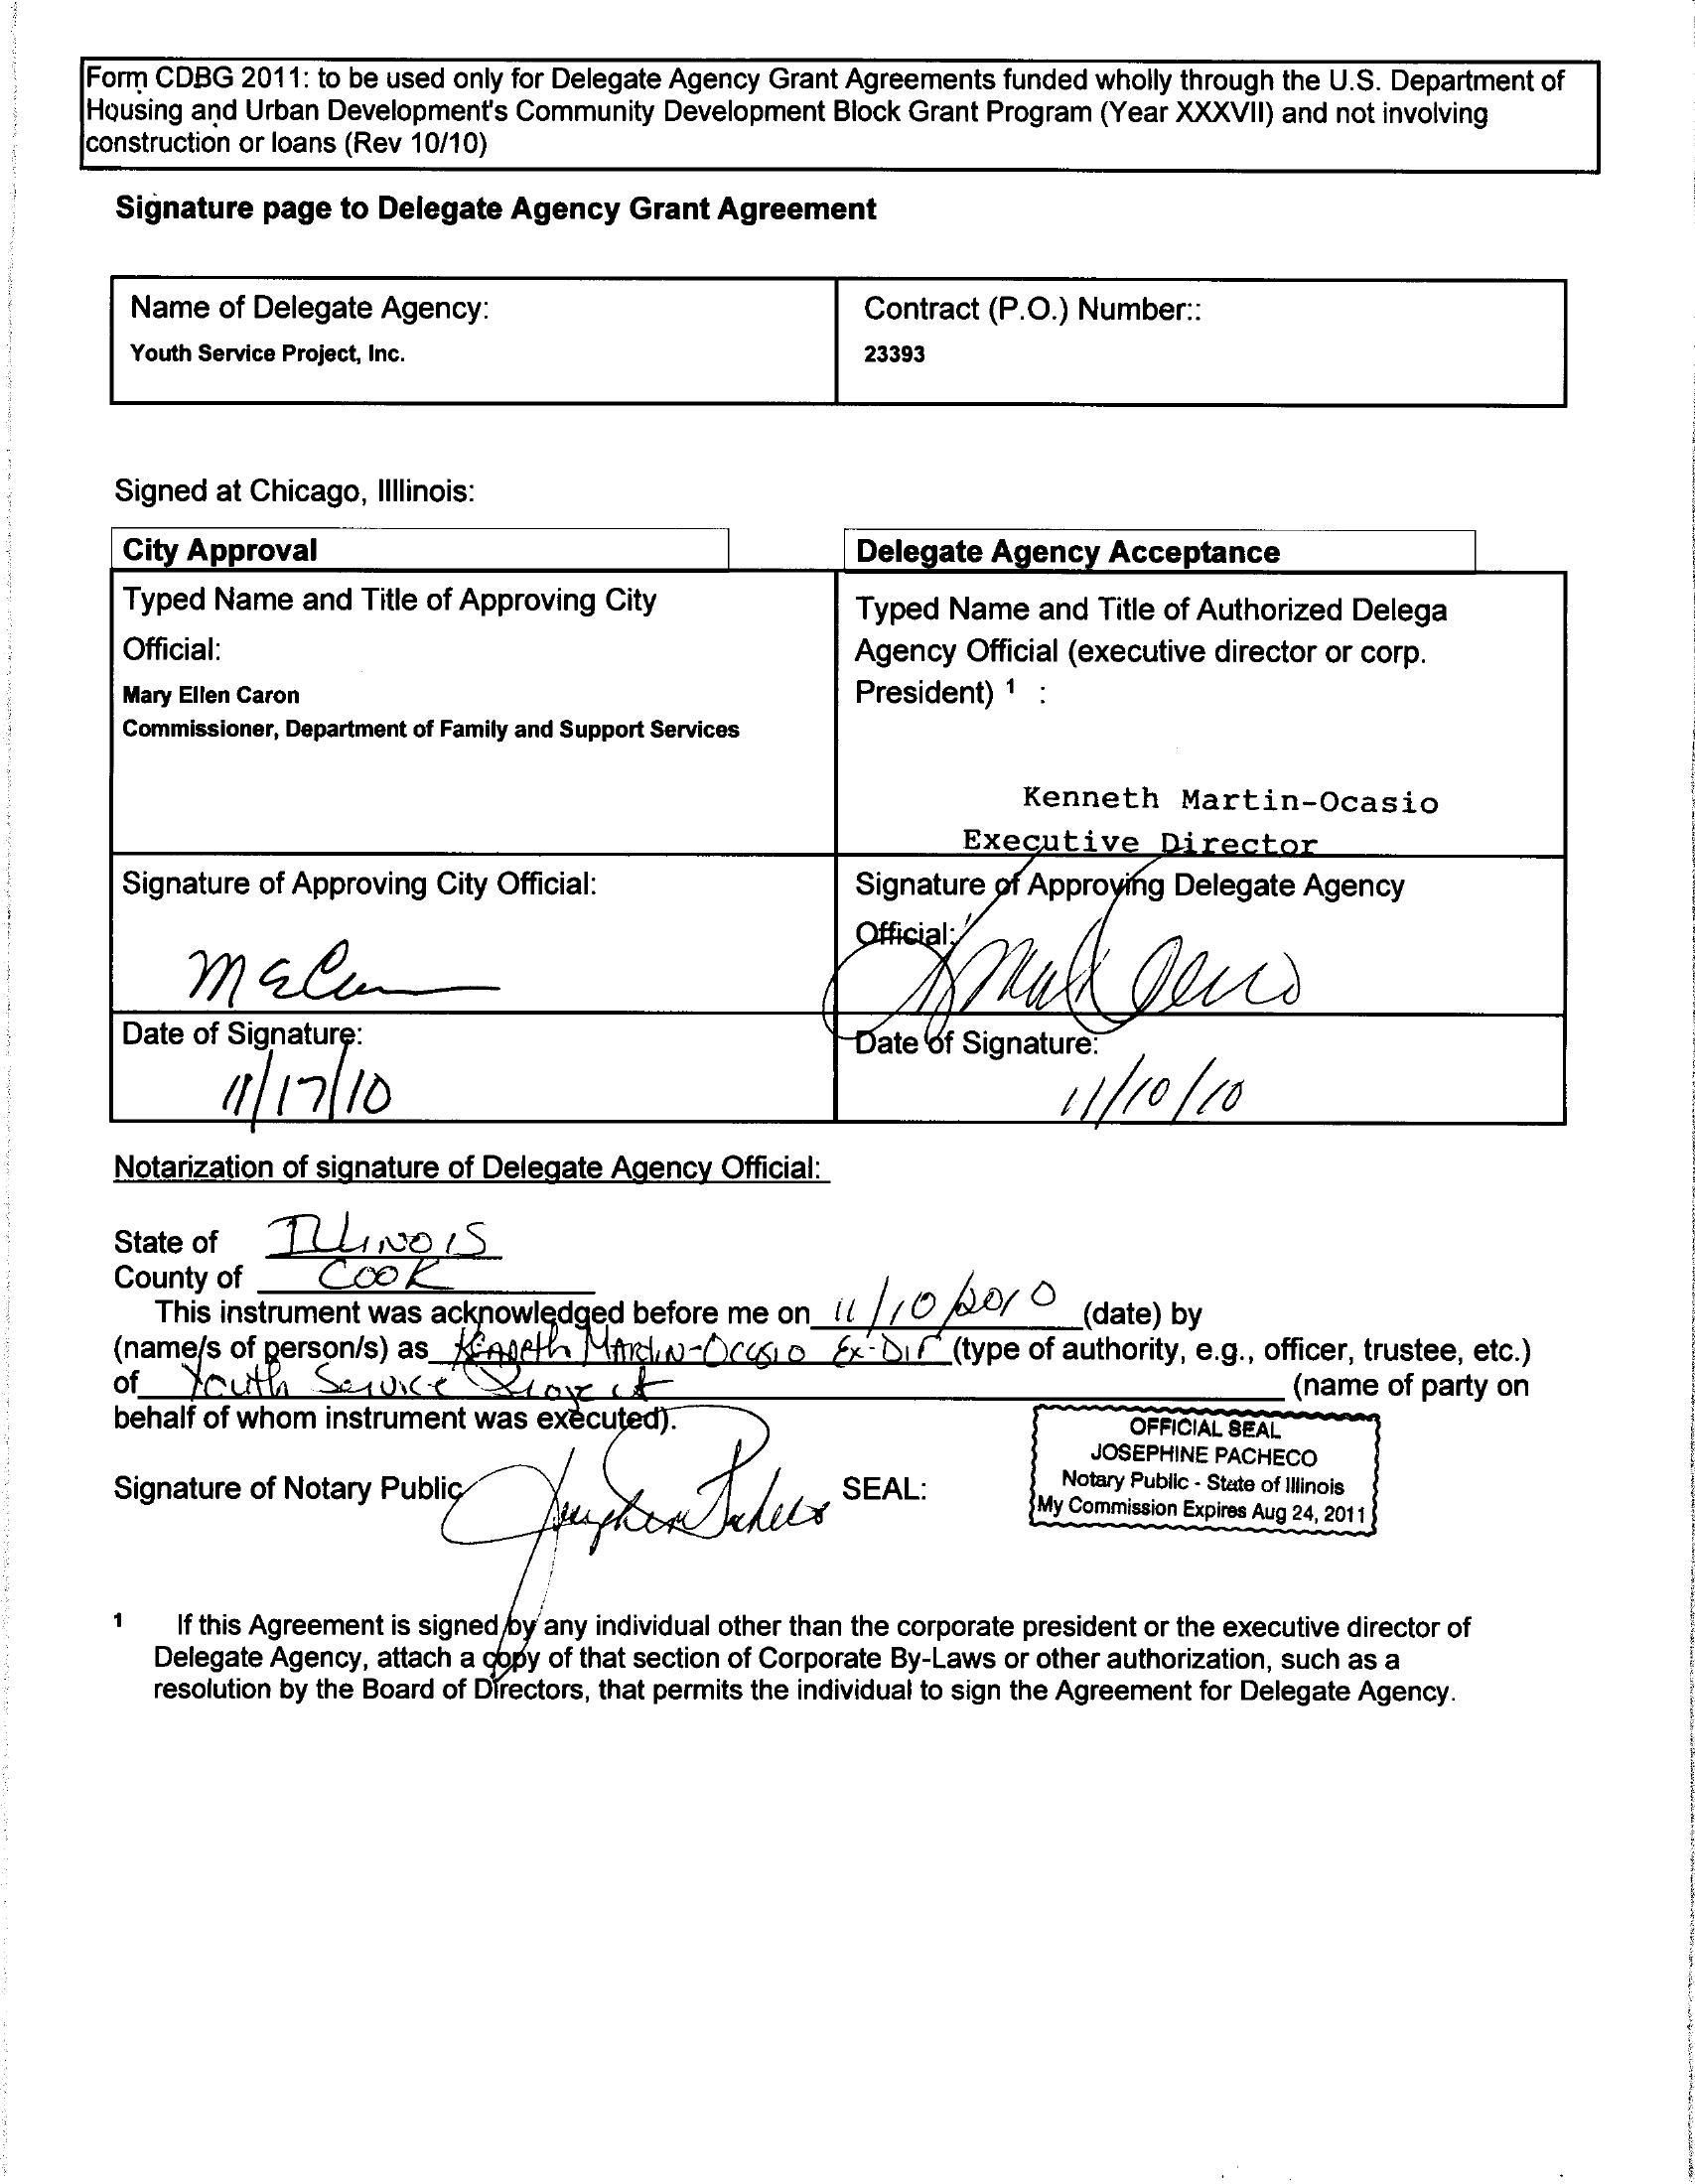 Form CDBG 2011: to be used only for Delegate Agency Grant Agreements funded wholly through the U.S. Department of
Housing and Urban Development's Community Development Block Grant Program (Year XXXVII) and not involving
construction or loans (Rev 10/10)
Signature page to Delegate Agency Grant Agreement
Name of Delegate Agency:
Youth Service Project, Inc.
Contract (P.O.) Number::
23393
Signed at Chicago, Illlinois:
City Approval
Typed Name and Title of Approving City
Official:
Mary Ellen Caron
Commissioner, Department of Family and Support Services
Signature of Approving City Official:
Date of Signature:
11/17/10
Delegate Agency Acceptance
Typed Name and Title of Authorized Delega
Agency Official (executive director or corp.
President) 1 :
Kenneth Martin-Ocasio
Executive Director
Signature of Approving Delegate Agency
Official:
Date of Signature:
11/10/10
Notarization of signature of Delegate Agency Official:
State of ILLINOIS
County of COOK
This instrument was acknowledged before me on 11/10/2010 (date) by
(name/s of person/s) as Kenneth Martin-Ocasio Ex-Dir (type of authority, e.g., officer, trustee, etc.)
of Youth Service Project (name of party on
behalf of whom instrument was executed).
Signature of Notary Public Josephine Pacheco SEAL:
OFFICIAL SEAL
JOSEPHINE PACHECO
Notary Public - State of Illinois
My Commission Expires Aug 24, 2011
1 If this Agreement is signed by any individual other than the corporate president or the executive director of
Delegate Agency, attach a copy of that section of Corporate By-Laws or other authorization, such as a
resolution by the Board of Directors, that permits the individual to sign the Agreement for Delegate Agency.